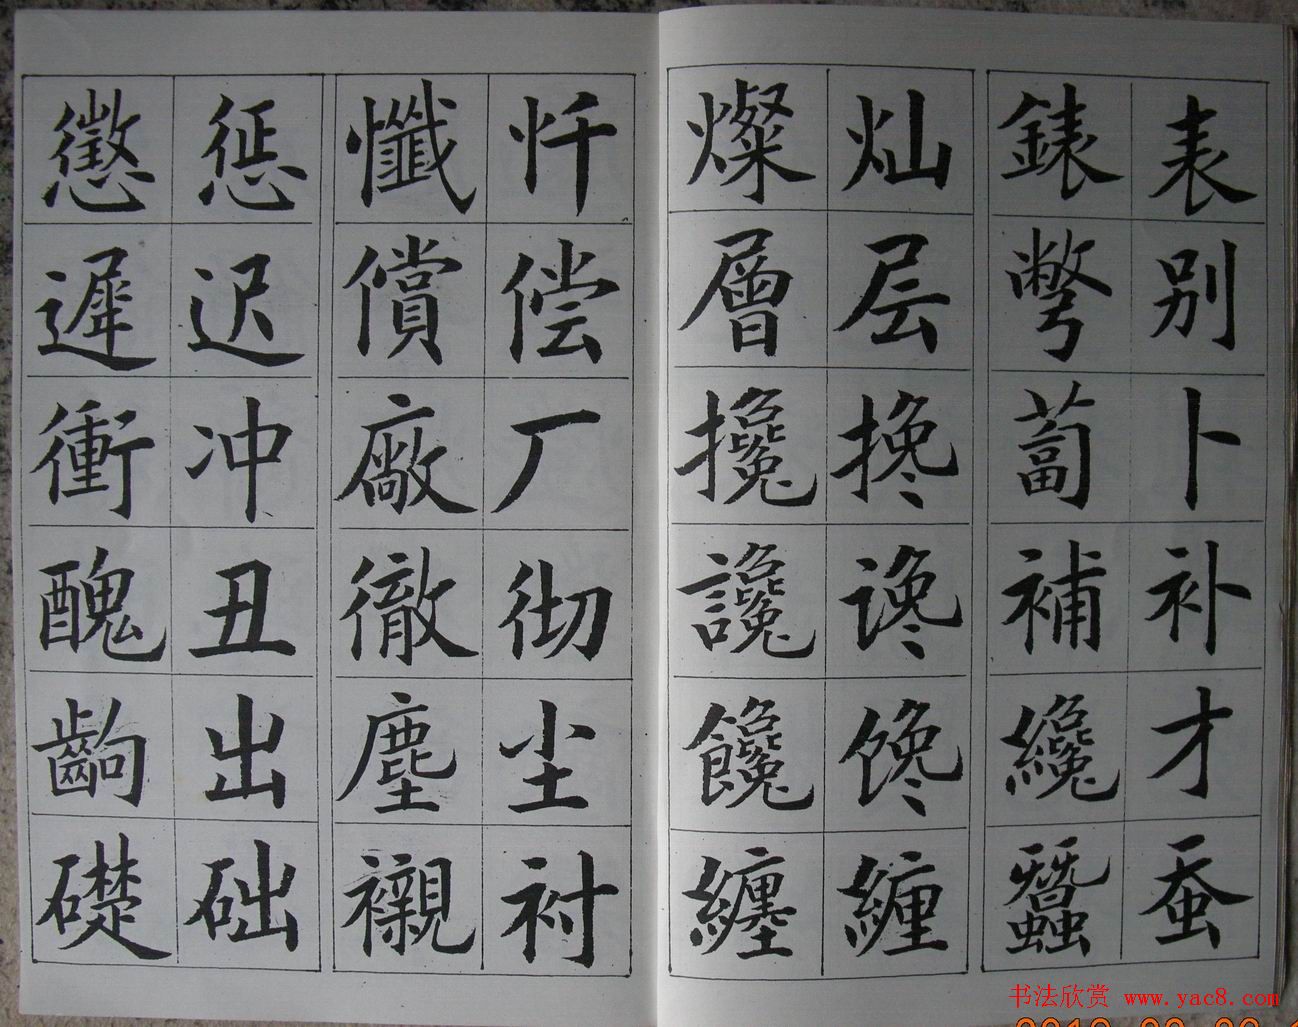 表别卜补才蚕
錶彆蔔補纔蠶
灿层搀谗馋缠
燦層攙讒饞纏
忏偿厂彻尘衬
懺償廠徹塵襯
惩迟冲丑出础
懲遲衝醜齣礎
书法欣赏 www.yac8.com